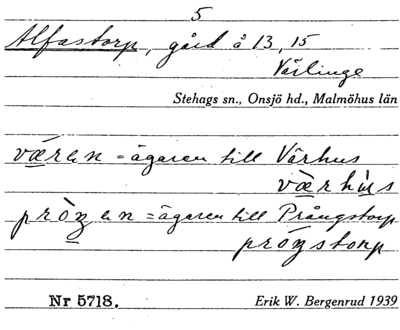 5
Alfastorp, gård å 13, 15
Vårlinge
Stehags sn., Onsjö hd., Malmöhus län
væ̀ran = ägaren till Vårhus
væ̀rhu̇s
prȯ̀ŋan = ägaren till Prångstorp
pròŋstorp
Nr 5718.
Erik W. Bergenrud 1939